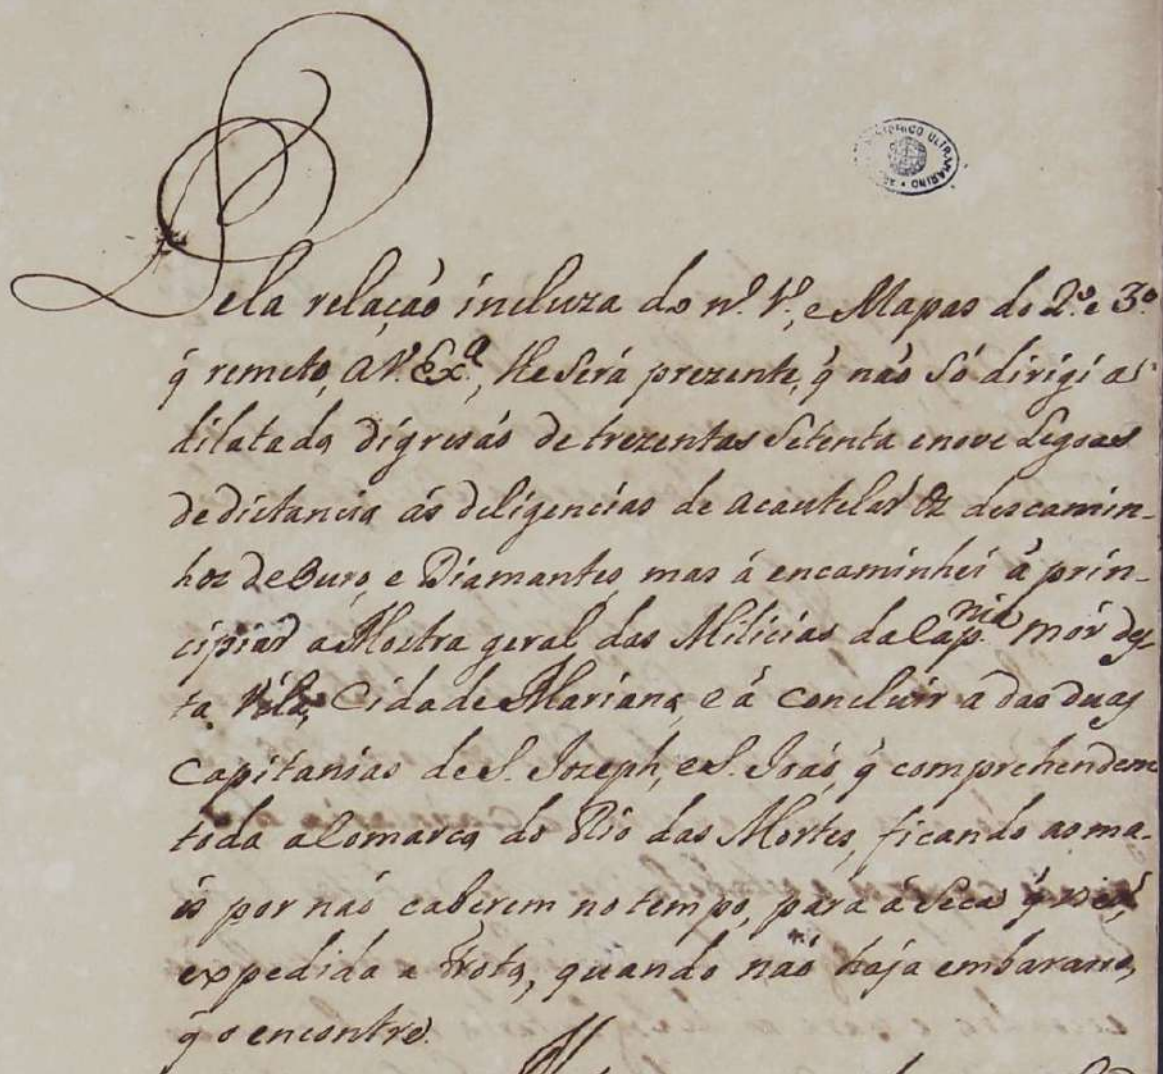 HISTORICO ULTRAMARINO
Pela relaçaõ incluza do n.º 1.º, e Mapas do 2.º e 3.º
q̃ remeto, a V. Ex.ª, lhe Será prezente, q̃ naõ Só dirigi as
dilatada digresaõ de trezentas Setenta e nove Legoas
de dictancia ás deligencias de acautelar os descamin-
hos de Ouro, e Diamantes, mas á encaminhei á prin-
cipiar a Mostra geral das Milicias da Cap.nia mór des-
ta Villa, Cidade Mariana, e á concluir a das duas
Capitanias de S. Jozeph, e S. Joaõ, q̃ comprehendem
toda a Comarca do Rio das Mortes, ficando as ma-
is por naõ caberem no tempo, para á Seca q̃ vier,
expedida a Frota, quando naõ haja embaraço,
q̃ o encontre.